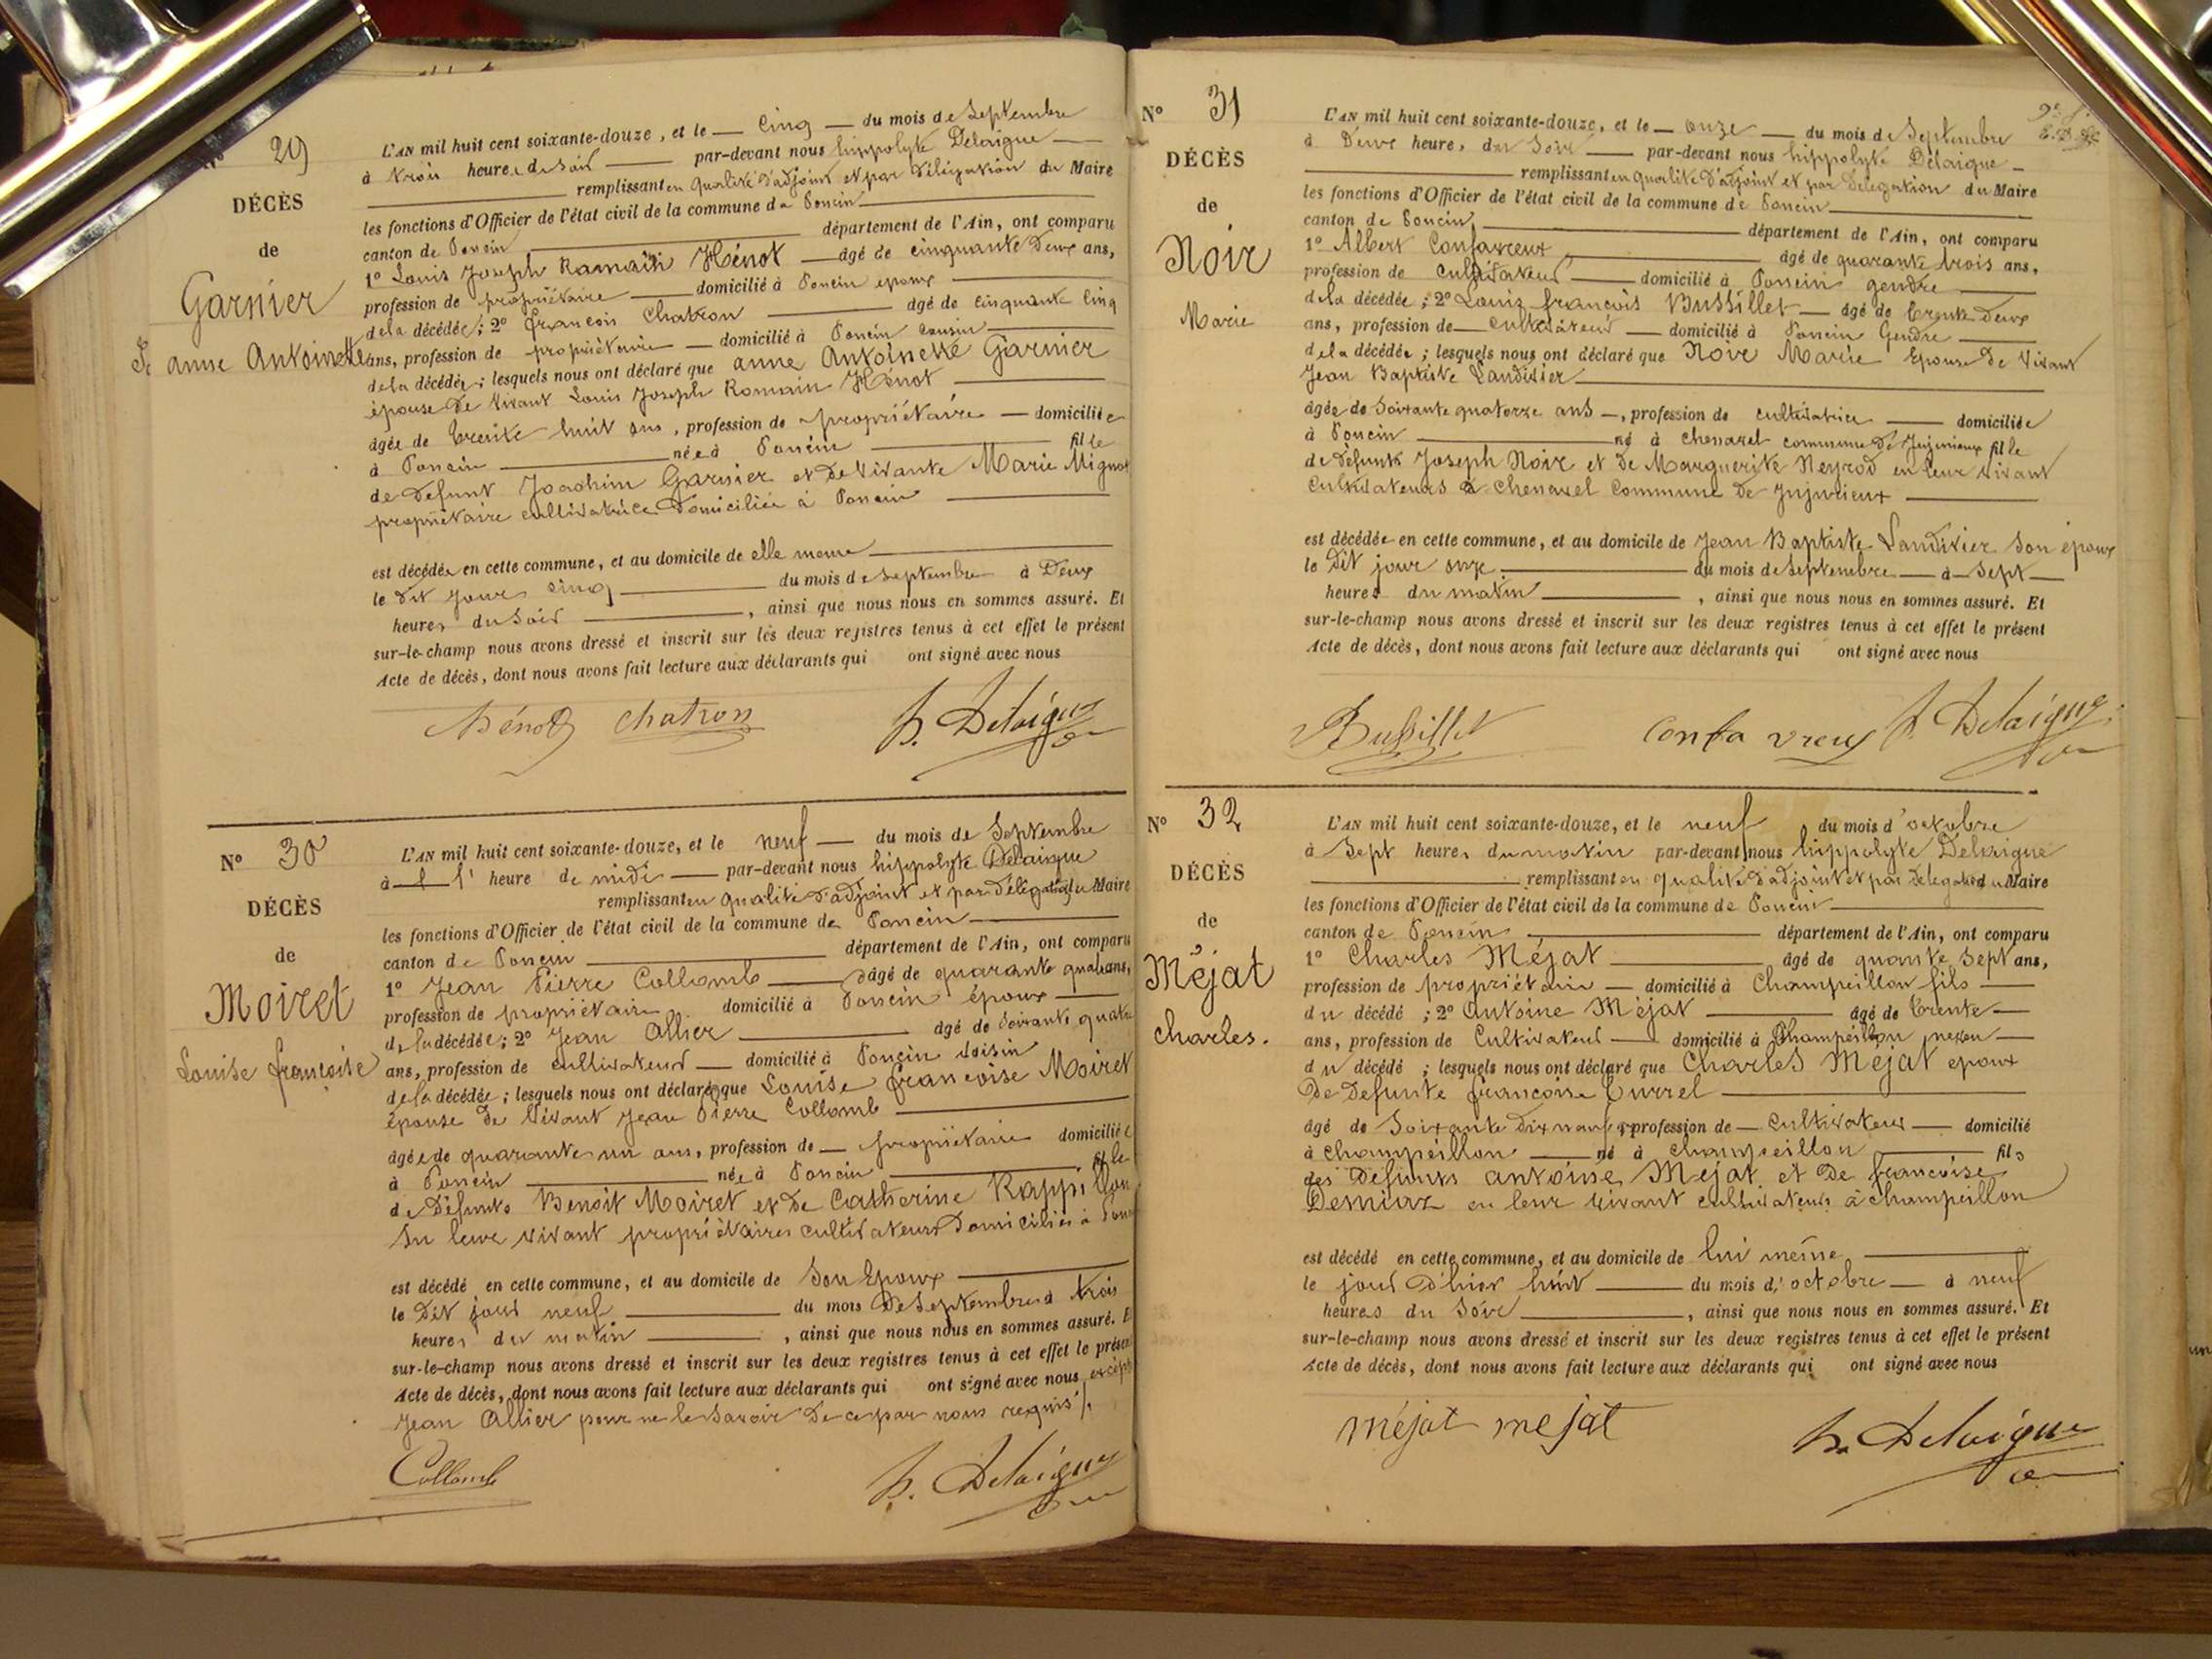 29
DÉCÈS
de
Garnier
anne Antoinette
L'AN mil huit cent soixante-douze, et le — cinq — du mois de Septembre
à trois heures du soir — par-devant nous hippolyte Delaigue —
remplissant en qualité d'adjoint et par délégation du Maire
les fonctions d'Officier de l'état civil de la commune de Poncin
canton de Poncin département de l'Ain, ont comparu
1° Louis Joseph Romain Hénot — âgé de cinquante Deux ans,
profession de propriétaire — domicilié à Poncin epoux
de la décédée; 2° françois Chatron âgé de cinquante cinq
ans, profession de propriétaire — domicilié à Poncin cousin
de la décédée; lesquels nous ont déclaré que anne Antoinette Garnier
épouse de vivant Louis Joseph Romain Hénot
âgée de trente huit ans, profession de propriétaire — domiciliée
à Poncin née à Poncin fille
de défunt Joachim Garnier et de vivante Marie Mignot
propriétaire cultivatrice domiciliée à Poncin
est décédée en cette commune, et au domicile de elle meme
le dit jour cinq du mois de septembre à Deux
heures du soir , ainsi que nous nous en sommes assuré. Et
sur-le-champ nous avons dressé et inscrit sur les deux registres tenus à cet effet le présent
Acte de décès, dont nous avons fait lecture aux déclarants qui ont signé avec nous
Hénot chatron h. Delaigue
N° 30
DÉCÈS
de
Moiret
Louise françoise
L'AN mil huit cent soixante-douze, et le neuf — du mois de Septembre
à — 1 l' heure de midi — par-devant nous hippolyte Delaigue
remplissant en qualité d'adjoint et par délégation du Maire
les fonctions d'Officier de l'état civil de la commune de Poncin
canton de Poncin département de l'Ain, ont comparu
1° Jean Pierre Collomb — âgé de quarante quatre ans,
profession de propriétaire domicilié à Poncin époux
de la décédée; 2° Jean Allier âgé de soixante quatre
ans, profession de cultivateur — domicilié à Poncin voisin
de la décédée; lesquels nous ont déclaré que Louise françoise Moiret
épouse de Vivant Jean Pierre Collomb
âgée de quarante un ans, profession de — propriétaire domiciliée
à Poncin née à Poncin fille
de défunts Benoit Moiret et de Catherine Rappillon
en leur vivant propriétaires cultivateurs Domiciliés à
est décédé en cette commune, et au domicile de Son Epoux
le Dit jour neuf du mois De Septembre à trois
heures du matin , ainsi que nous nous en sommes assuré. E
sur-le-champ nous avons dressé et inscrit sur les deux registres tenus à cet effet le prése
Acte de décès, dont nous avons fait lecture aux déclarants qui ont signé avec nous
Jean Allier pour ne le savoir De ce par nous requis
Collomb h. Delaigue
N° 31
DÉCÈS
de
Noir
Marie
L'AN mil huit cent soixante-douze, et le — onze — du mois de Septembre
à Deux heures du Soir — par-devant nous hippolyte Delaigue —
remplissant en qualité d'adjoint et par Délégation du Maire
les fonctions d'Officier de l'état civil de la commune de Poncin
canton de Poncin département de l'Ain, ont comparu
1° Albert Confavreux âgé de quarante trois ans,
profession de cultivateur — domicilié à Poncin gendre
de la décédée; 2° Louis françois Bussillet — âgé de trente Deux
ans, profession de — cultivateur — domicilié à Poncin Gendre
de la décédée; lesquels nous ont déclaré que Noir Marie Epouse De Vivant
Jean Baptiste Landivier
âgée de Soixante quatorze ans —, profession de cultivatrice — domiciliée
à Poncin né à chenavel commune de Jujurieux fille
de défunts Joseph Noir et de Marguerite Neyrod en leur vivant
cultivateurs à chenavel Commune de Jujurieux
est décédée en cette commune, et au domicile de Jean Baptiste Landivier Son époux
le Dit jour onze du mois de Septembre — à — Sept —
heures du matin , ainsi que nous nous en sommes assuré. Et
sur-le-champ nous avons dressé et inscrit sur les deux registres tenus à cet effet le présent
Acte de décès, dont nous avons fait lecture aux déclarants qui ont signé avec nous
Bussillet Confavreux h. Delaigue
N° 32
DÉCÈS
de
Méjat
charles.
L'AN mil huit cent soixante-douze, et le neuf du mois d'octobre
à Sept heures du matin par-devant nous hippolyte Delaigue
remplissant en qualité d'adjoint et par Delegation du Maire
les fonctions d'Officier de l'état civil de la commune de Poncin
canton de Poncin département de l'Ain, ont comparu
1° Charles Méjat âgé de quante Sept ans,
profession de propriétaire — domicilié à Champeillon fils
du décédé; 2° Antoine Méjat âgé de trente —
ans, profession de Cultivateur — domicilié à Champeillon neveu
du décédé; lesquels nous ont déclaré que Charles Mejat epoux
De Defunte françoise Turrel
âgé de Soixante Dix neuf profession de — cultivateur — domicilié
à Champeillon né à Champeillon fils
des Defunts antoine Mejat et De françoise
Demiaz en leur vivant cultivateurs à champeillon
est décédé en cette commune, et au domicile de lui meme
le jour d'hier huit — du mois d'octobre — à neuf
heures du soir , ainsi que nous nous en sommes assuré. Et
sur-le-champ nous avons dressé et inscrit sur les deux registres tenus à cet effet le présent
Acte de décès, dont nous avons fait lecture aux déclarants qui ont signé avec nous
méjat mejat h. Delaigue